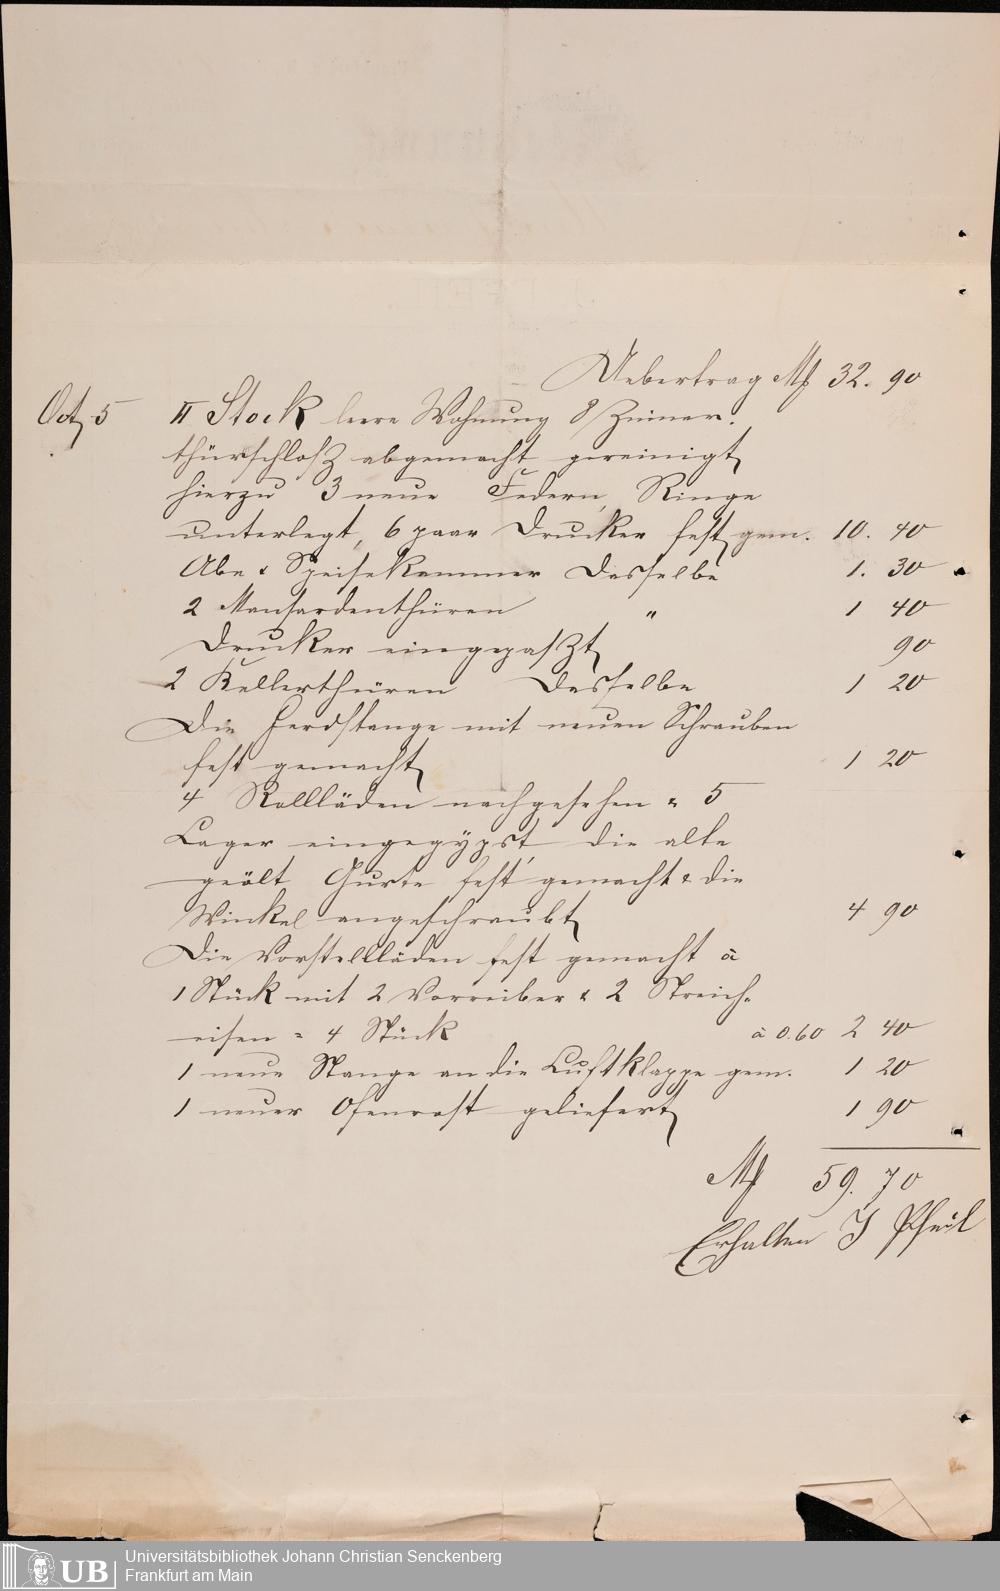 Uebertrag Mk 32. 90
Oct. 5 II Stock leere Wohnung 8 Zimer.
thürschloß abgemacht gereinigt
hierzu 3 neue Federn, Ringe
unterlegt, 6 paar Drucker fest gem. 10. 40
Abe & Speisekammer Dasselbe 1. 30
2 Mansardenthüren " 1 40
Drucker eingepaßt 90
2 Kellerthüren Dasselbe 1 20
Die Herdstange mit neuen Schrauben
fest gemacht 1 20
4 Rollläden nachgesehen = 5
Lager eingegÿpst, die alte
geölt Gurte fest gemacht & die
Winkel angeschraubt 4 90
Die Vorstellläden fest gemacht à
1 Stück mit 2 Vorreiber & 2 Streich-
eisen = 4 Stück à 0.60 2 40
1 neue Stange an die Luftklappe gem. 1 20
1 neuer Ofenrost geliefert 1 90
Mk 59. 70
Erhalten J Pfeil
UB Universitätsbibliothek Johann Christian Senckenberg
Frankfurt am Main